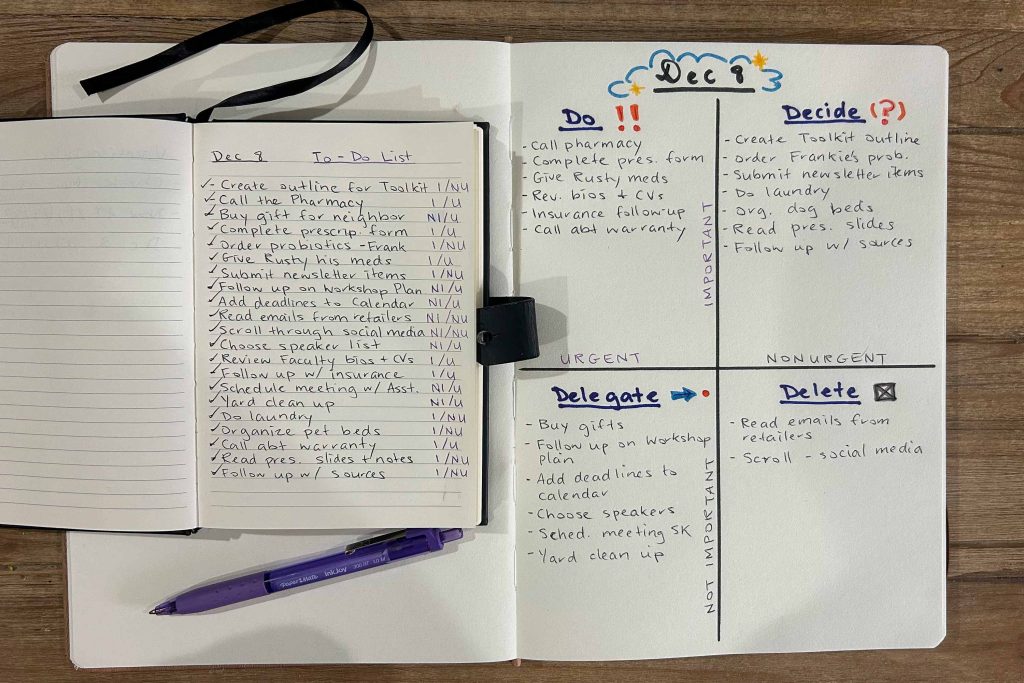 Dec 8 To-Do List
✓- Create outline for Toolkit I/NU
✓- Call the Pharmacy I/U
✓- Buy gift for neighbor NI/U
✓- Complete prescrip. form I/U
✓- Order probiotics - Frank I/NU
✓- Give Rusty his meds I/U
✓- Submit newsletter items I/NU
✓- Follow up on Workshop Plan NI/U
✓- Add deadlines to Calendar NI/U
✓- Read emails from retailers NI/NU
✓- Scroll through social media NI/NU
✓- Choose speaker list NI/U
✓- Review Faculty bios + CVs I/U
✓- Follow up w/ insurance I/U
✓- Schedule meeting w/ Asst. NI/U
✓- Yard clean up NI/U
✓- Do laundry I/NU
✓- Organize pet beds I/NU
✓- Call abt warranty I/U
✓- Read pres. slides + notes I/NU
✓- Follow up w/ sources I/NU
PaperMate InkJoy 300 RT 1.0 M
Dec 8
Do !!
- Call pharmacy
- Complete pres. form
- Give Rusty meds
- Rev. bios + CVs
- Insurance follow-up
- Call abt warranty
IMPORTANT
URGENT
Decide (?)
- Create Toolkit outline
- Order Frankie's prob.
- Submit newsletter items
- Do laundry
- Org. dog beds
- Read pres. slides
- Follow up w/ sources
NONURGENT
Delegate
- Buy gifts
- Follow up on Workshop
Plan
- Add deadlines to
calendar
- Choose speakers
- Sched. meeting SK
- Yard clean up
NOT IMPORTANT
Delete
- Read emails from
retailers
- Scroll - social media